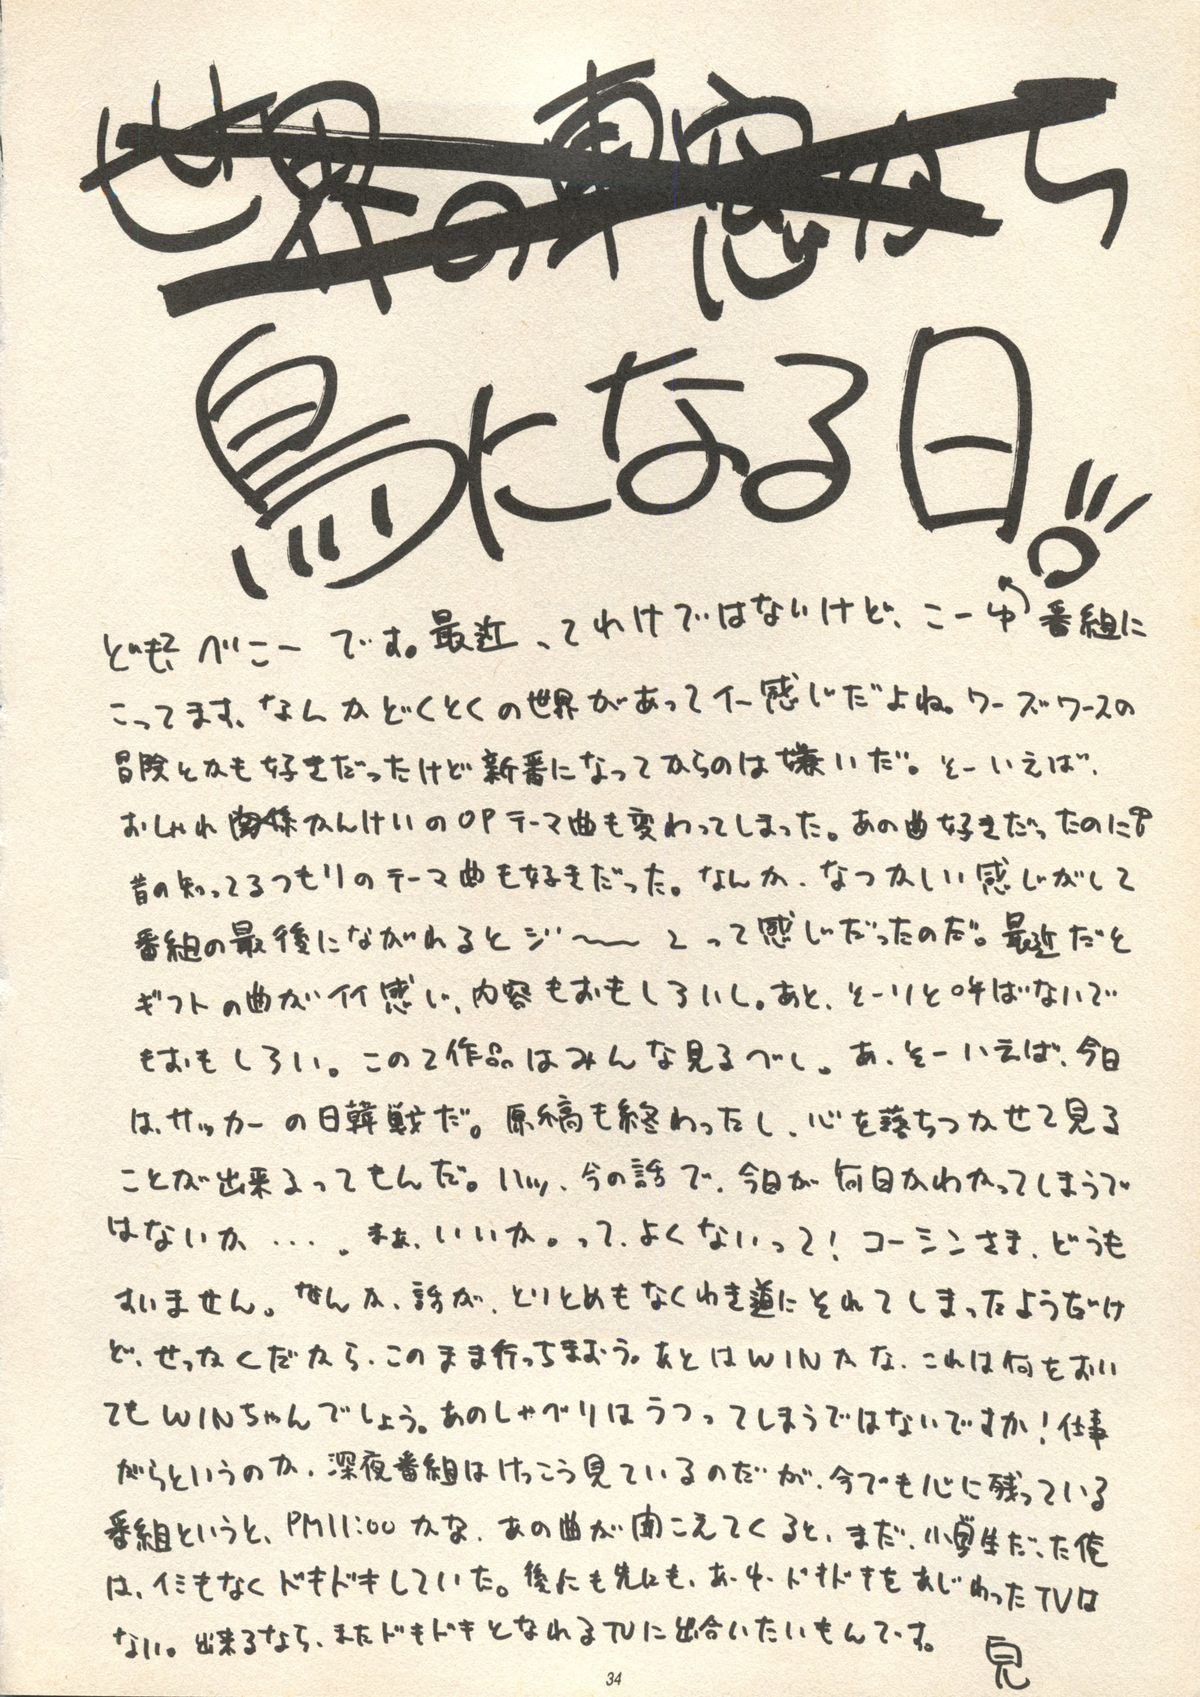 世界の車窓から
鳥になる日!!
どもべにーです。最近ってわけではないけど、こーゆ番組に
こってます、なんかどくとくの世界があってイー感じだよね。ワーズワースの
冒険とかも好きだったけど新番になってからのは嫌いだ。そーいえば、
おしゃれ関係かんけいのOPテーマ曲も変わってしまった。あの曲好きだったのに
昔の知ってるつもりのテーマ曲も好きだった。なんか、なつかしい感じがして
番組の最後にながれるとジ〜〜ンって感じだったのだ。最近だと
ギフトの曲がイイ感じ、内容もおもしろいし。あと、そーりと呼ばないで
もおもしろい。この2作品はみんな見るべし。あ、そーいえば、今日
は、サッカーの日韓戦だ。原稿も終わったし、心を落ちつかせて見る
ことが出来るってもんだ。ハッ、今の話で、今日が何日かわかってしまうで
はないか…。まぁ、いいか。って、よくないって!コーシンさま、どうも
すいません。なんか、話が、とりとめもなくわき道にそれてしまったようだけ
ど、せっかくだから、このまま行っちまおう。あとはWINかな、これは何をおい
てもWINちゃんでしょう。あのしゃべりはうつってしまうではないですか!仕事
がらというのか、深夜番組はけっこう見ているのだが、今でも心に残っている
番組というと、PM11:00かな、あの曲が聞こえてくると、まだ、小学生だった俺
は、イミもなくドキドキしていた。後にも先にも、あーゆードキドキをあじわったTVは
ない。出来るなら、またドキドキとなれるTVに出合いたいもんです。
34